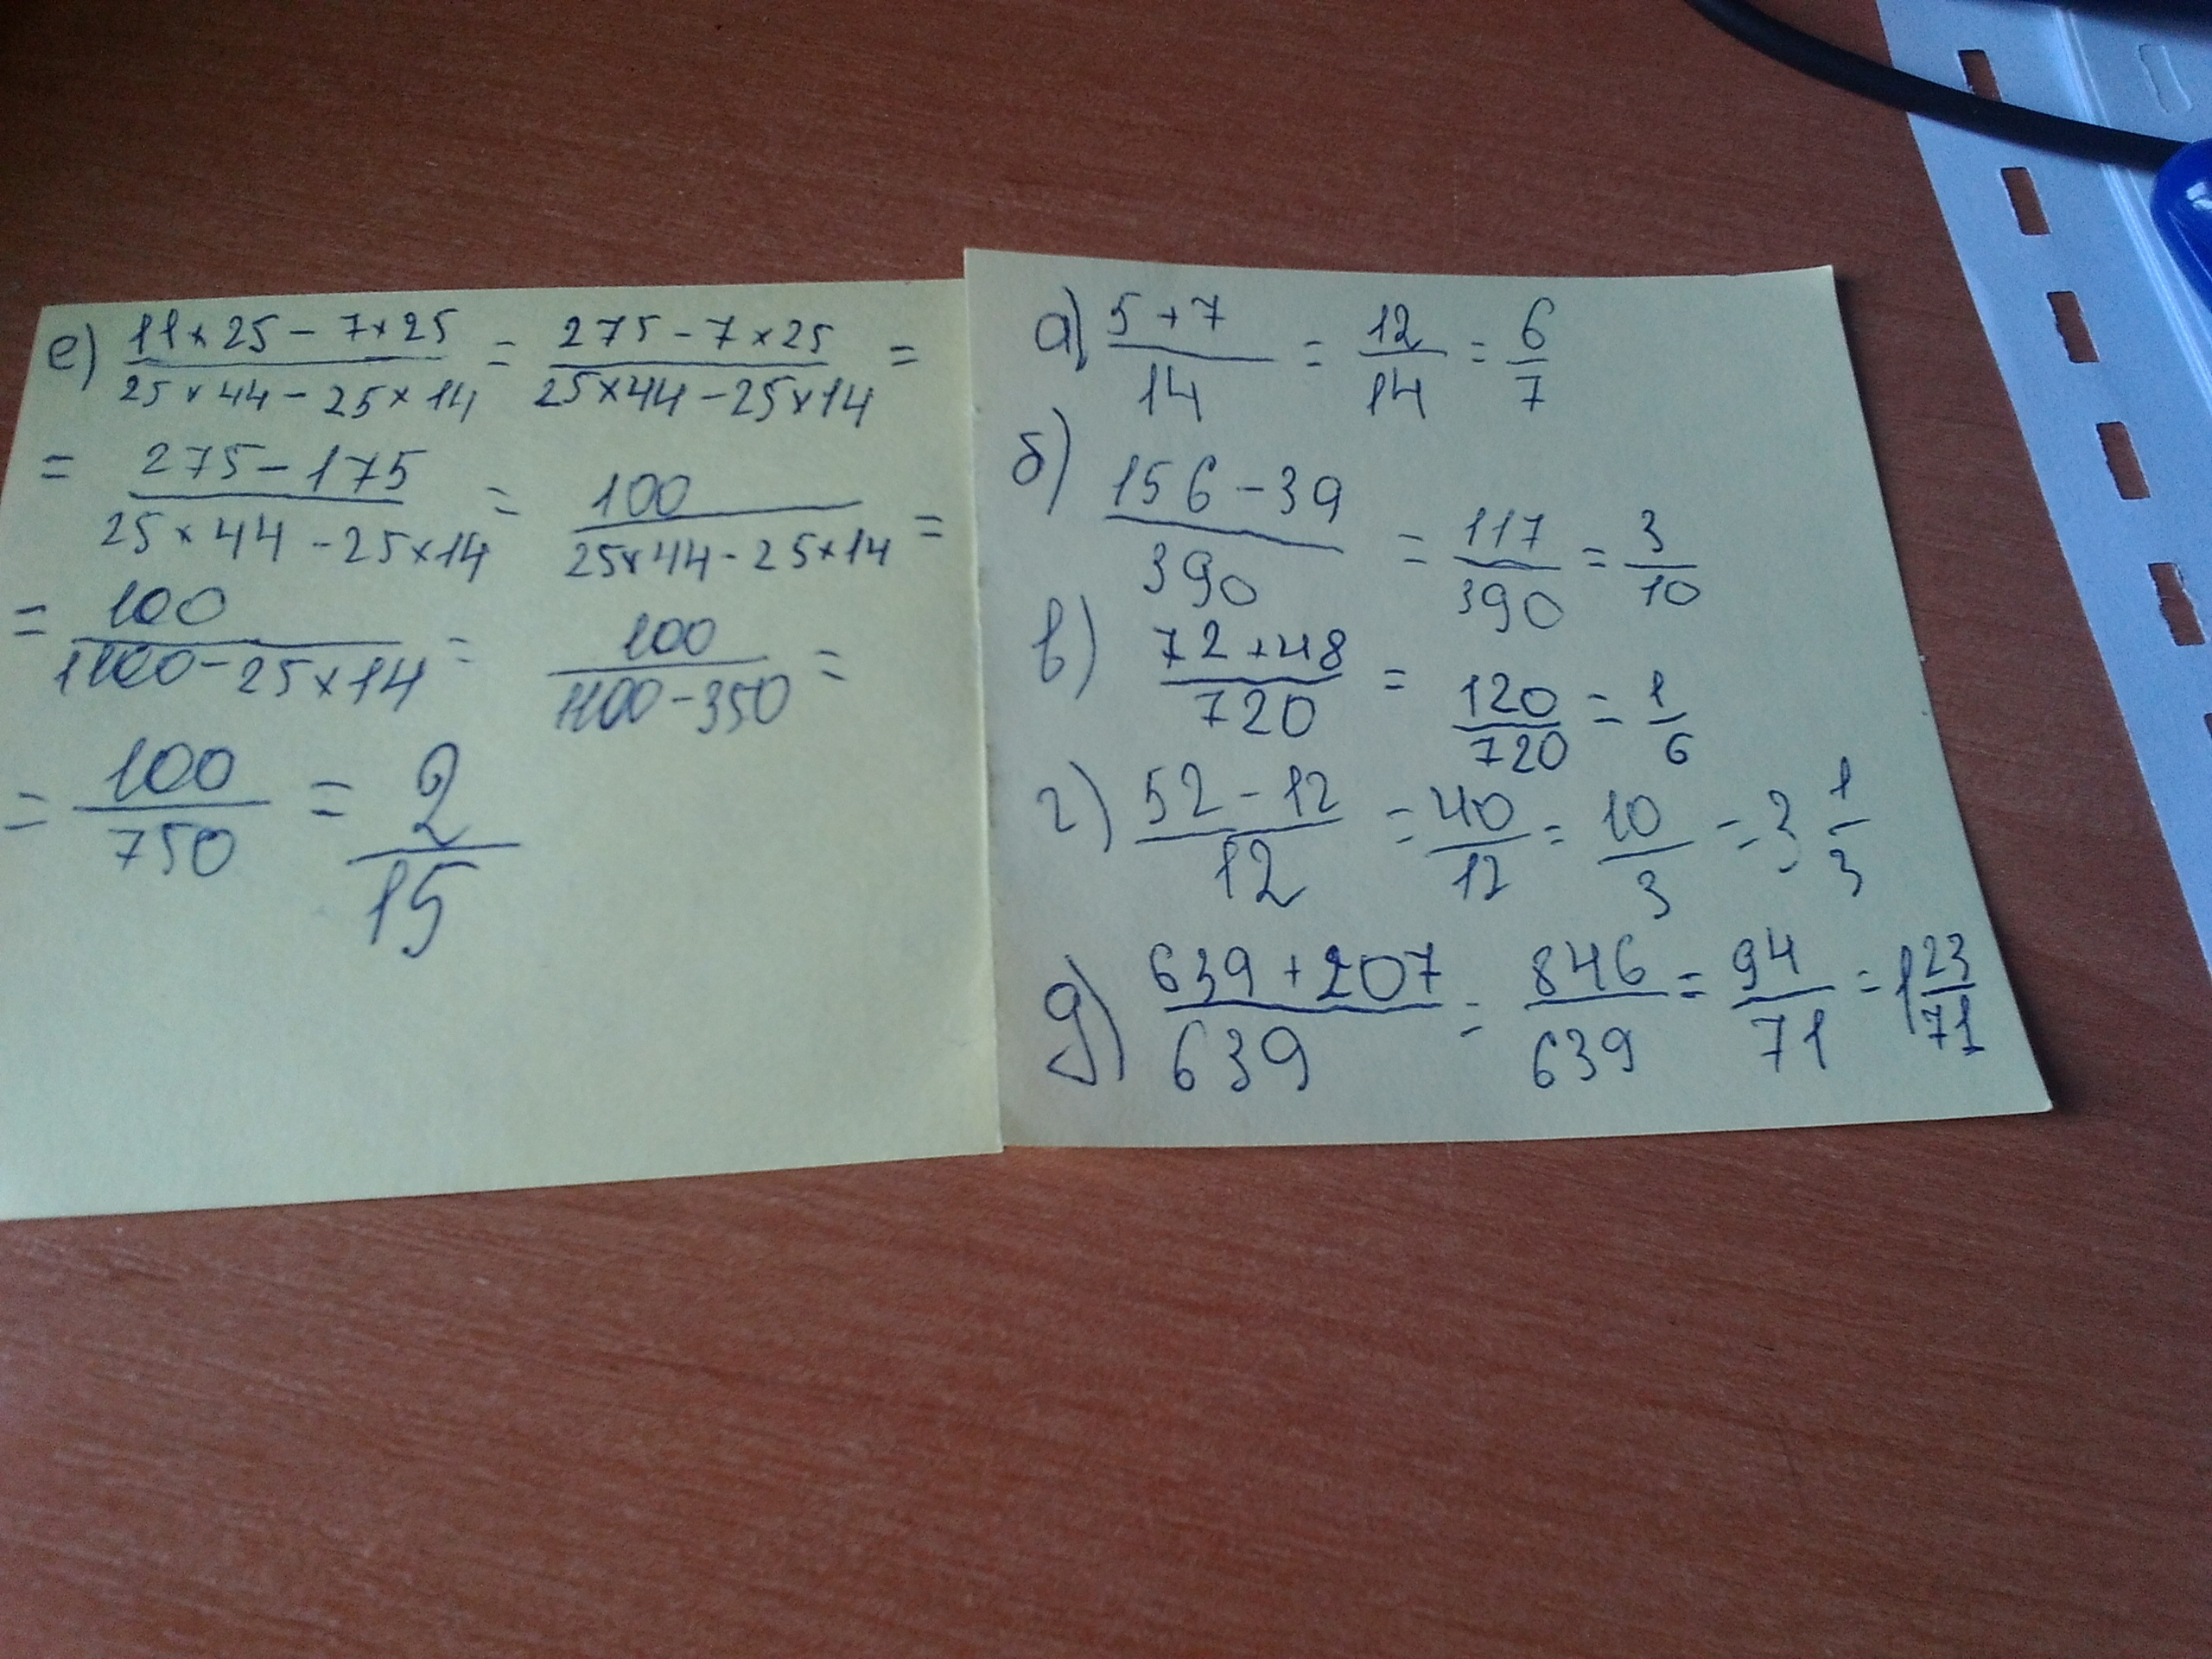 е) (11×25-7×25)/(25×44-25×14) = (275-7×25)/(25×44-25×14) =
= (275-175)/(25×44-25×14) = 100/(25×44-25×14) =
= 100/(1100-25×14) = 100/(1100-350) =
= 100/750 = 2/15
а) (5+7)/14 = 12/14 = 6/7
б) (156-39)/390 = 117/390 = 3/10
в) (72+48)/720 = 120/720 = 1/6
г) (52-12)/12 = 40/12 = 10/3 = 3 1/3
д) (639+207)/639 = 846/639 = 94/71 = 1 23/71